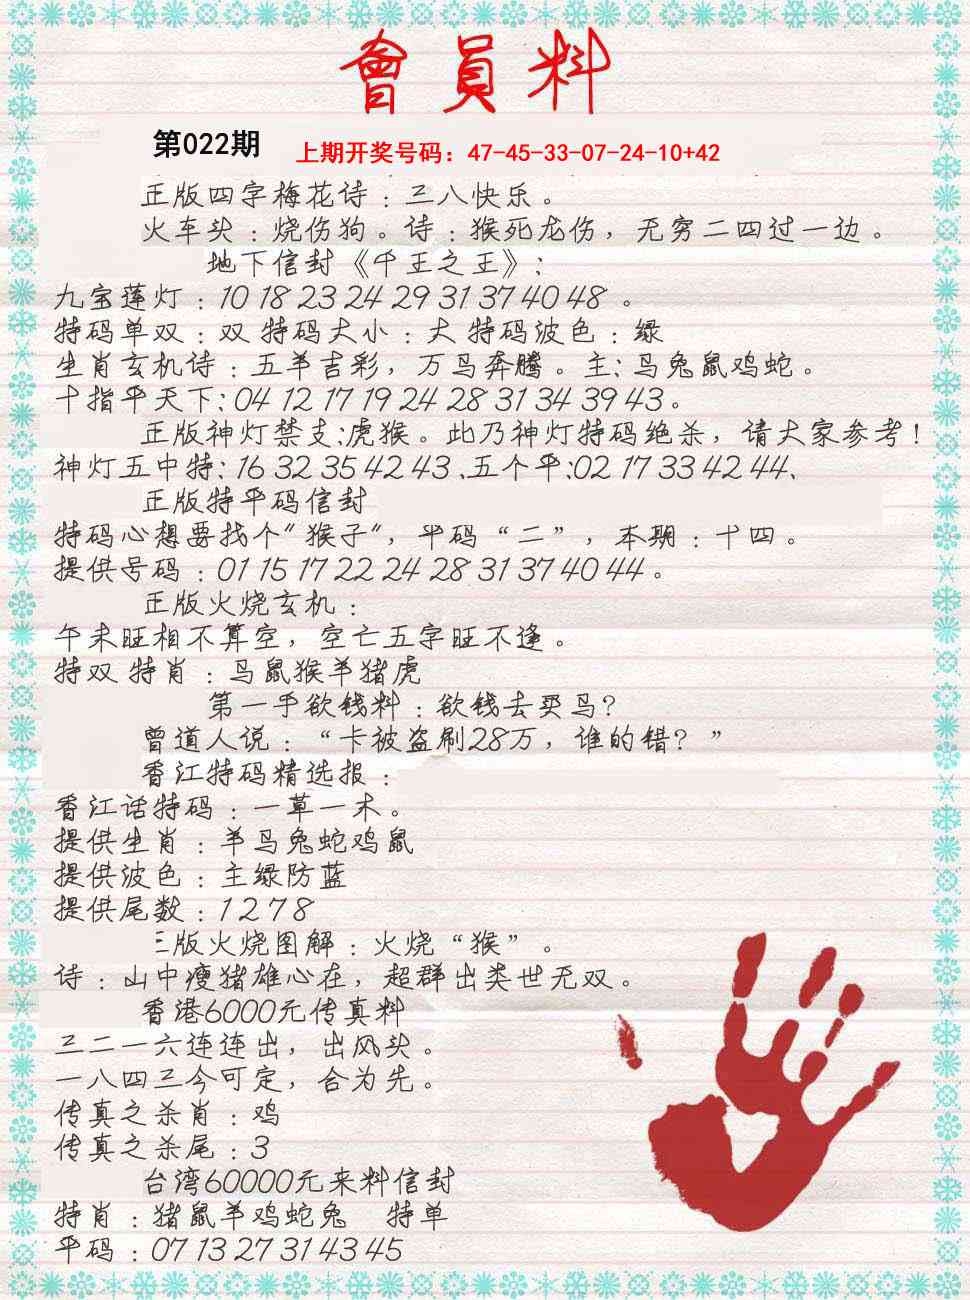 會員料
第022期 上期开奖号码：47-45-33-07-24-10+42
正版四字梅花诗：三八快乐。
火车头：烧伤狗。诗：猴死龙伤，无穷二四过一边。
地下信封《千王之王》：
九宝莲灯：10 18 23 24 29 31 37 40 48 。
特码单双：双 特码大小：大 特码波色：绿
生肖玄机诗：五羊吉彩，万马奔腾。主：马兔鼠鸡蛇。
十指平天下：04 12 17 19 24 28 31 34 39 43。
正版神灯禁支:虎猴。此乃神灯特码绝杀，请大家参考！
神灯五中特：16 32 35 42 43 、五个平:02 17 33 42 44、
正版特平码信封
特码心想要找个"猴子"，平码“二”，本期：十四。
提供号码：01 15 17 22 24 28 31 37 40 44 。
正版火烧玄机：
午未旺相不算空，空亡五字旺不逢。
特双 特肖：马鼠猴羊猪虎
第一手欲钱料：欲钱去买马？
曾道人说：“卡被盗刷28万，谁的错？”
香江特码精选报：
香江话特码：一草一木。
提供生肖：羊马兔蛇鸡鼠
提供波色：主绿防蓝
提供尾数：1 2 7 8
版火烧图解：火烧“猴”。
诗：山中瘦猪雄心在，超群出类世无双。
香港6000元传真料
三二一六连连出，出风头。
一八四三今可定，合为先。
传真之杀肖：鸡
传真之杀尾：3
台湾60000元来料信封
特肖：猪鼠羊鸡蛇兔 特单
平码：07 13 27 31 43 45